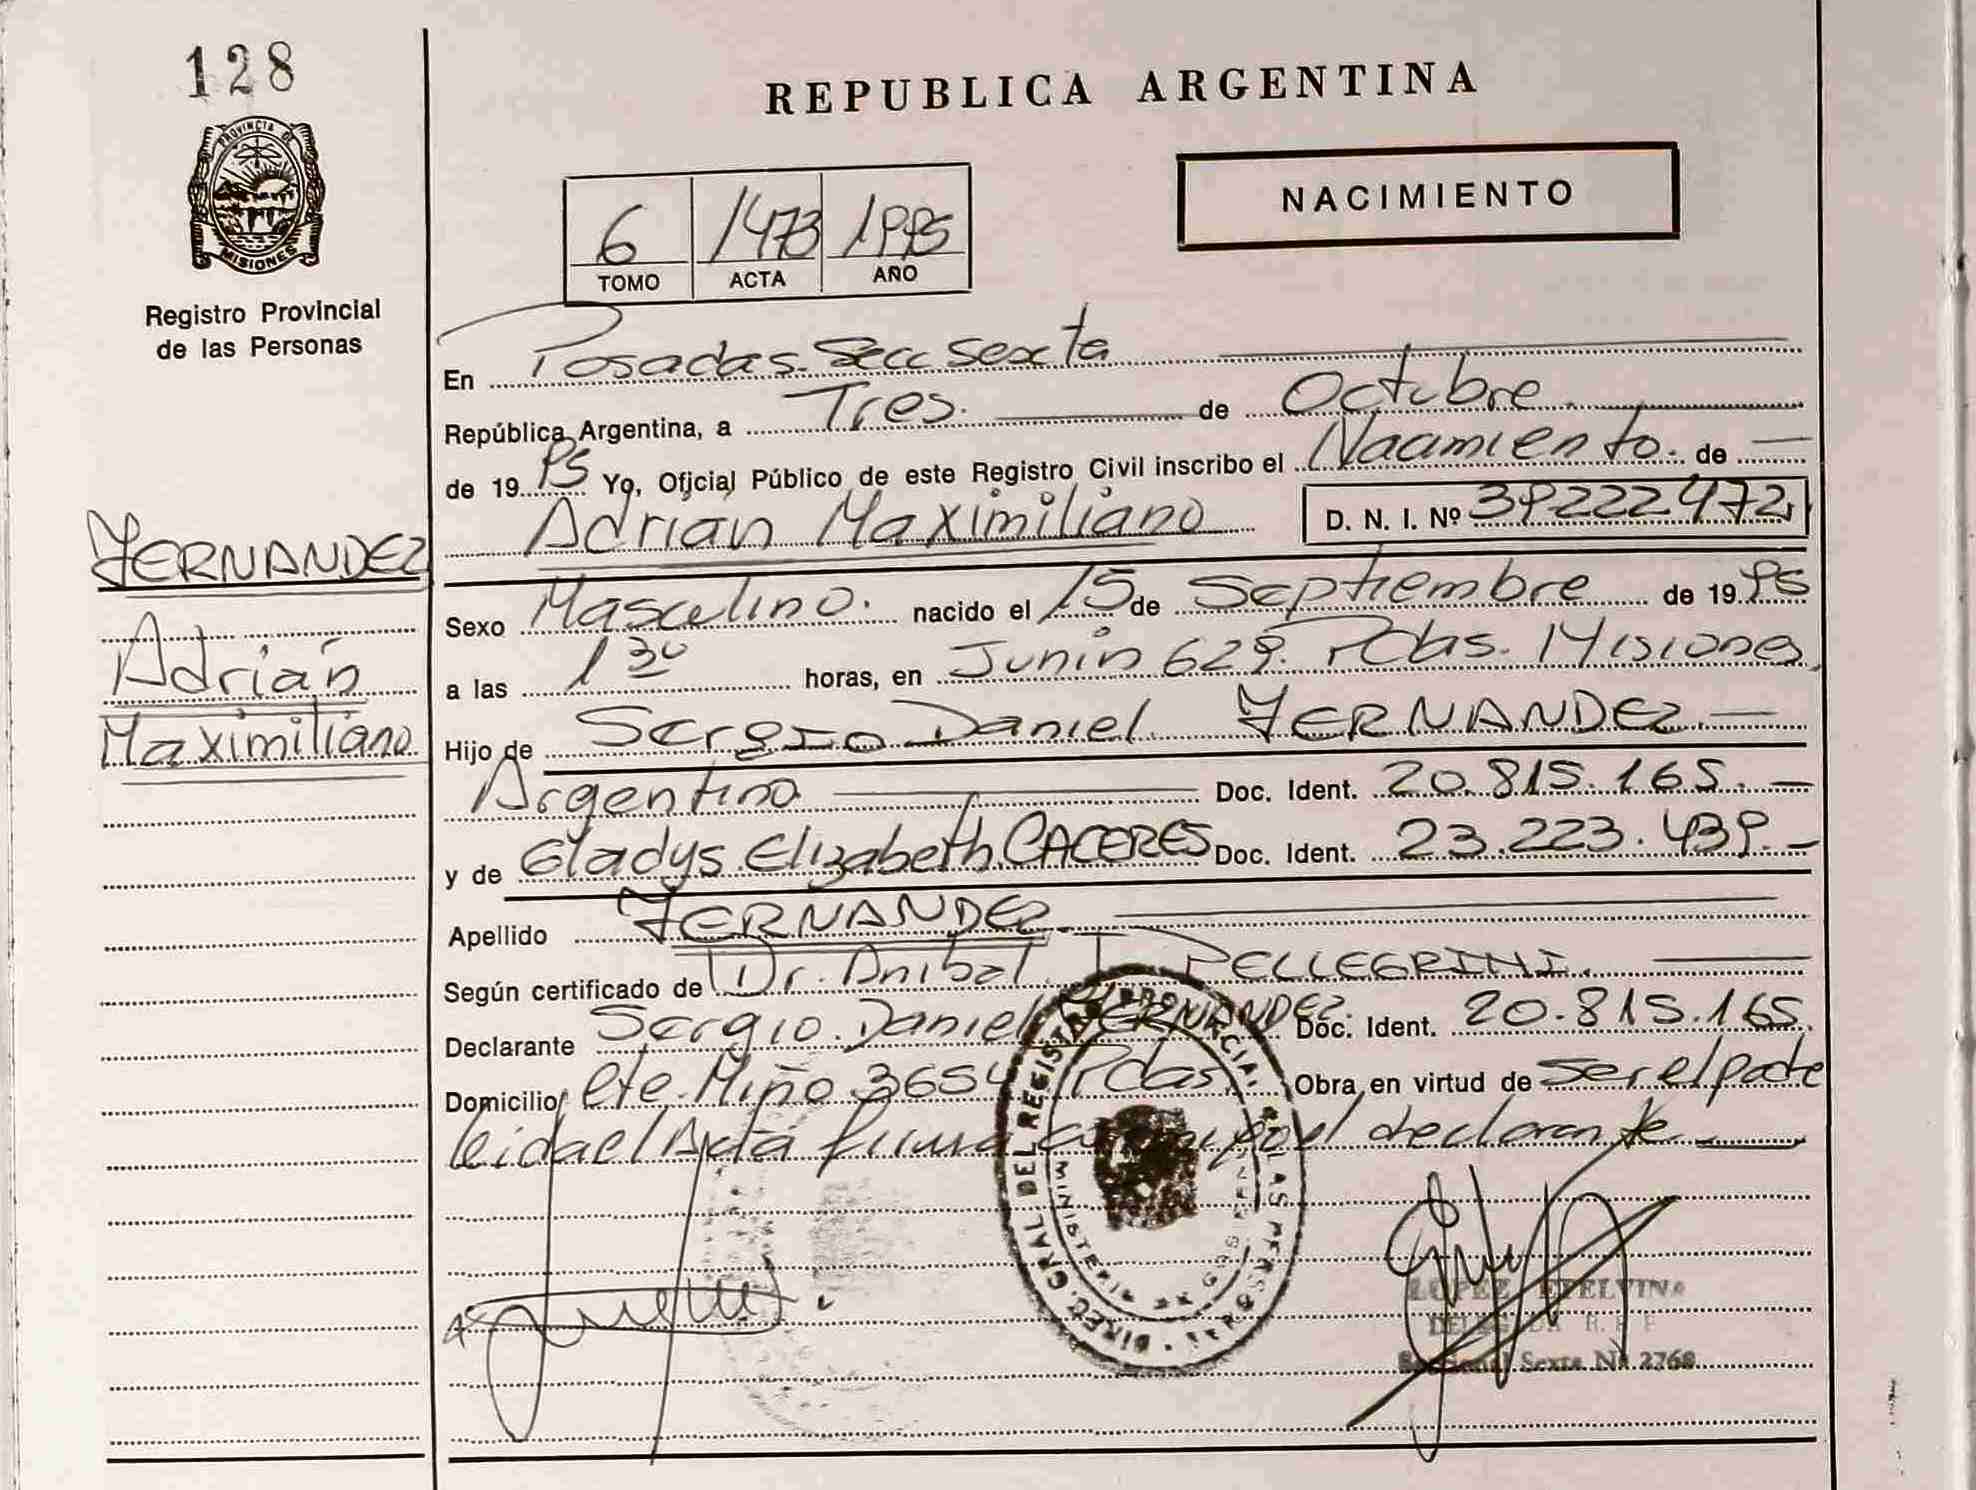 128
REPUBLICA ARGENTINA
PROVINCIA DE
MISIONES
Registro Provincial
de las Personas
6 1473 1995
TOMO ACTA AÑO
NACIMIENTO
En Posadas. Secc Sexta
República Argentina, a Tres. de Octubre.
de 1995 Yo, Oficial Público de este Registro Civil inscribo el Nacimiento. de
Adrián Maximiliano D. N. I. Nº 39222472
FERNANDEZ
Adrián
Maximiliano
Sexo Masculino. nacido el 15 de Septiembre de 1995
a las 1 30 horas, en Junín 629. Pdas. Misiones
Hijo de Sergio Daniel FERNANDEZ.
Argentina Doc. Ident. 20.815.165.
y de Gladys Elizabeth CACERES Doc. Ident. 23.223.439.
Apellido FERNANDEZ
Según certificado de Dr. Anibal PELLEGRINI.
Declarante Sergio Daniel FERNANDEZ. Doc. Ident. 20.815.165.
Domicilio Miño 3654 Pdas. Obra en virtud de ser el padre
leida el Acta firma el declarante
DIREC. GRAL DEL REGISTRO PROVINCIAL LAS PERSONAS
MINISTERIO DE
LOPEZ ETELVINA
DELEGADA R. P. P
Seccional Sexta Nº 2768